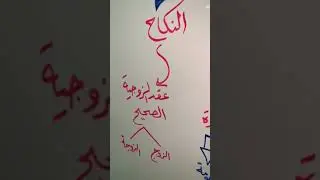 النكاح
عقد الزوجية
الصحيح
الزوج الزوجة